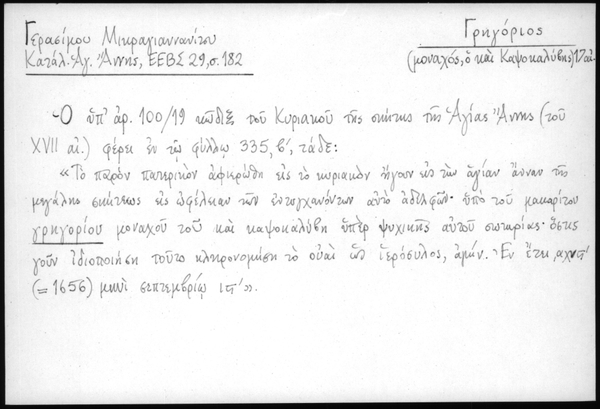 Γερασίμου Μικραγιαννανίτου
Κατάλ. Ἁγ. Ἄννης, ΕΕΒΣ 29, σ. 182
Γρηγόριος
(μοναχός, ὁ καὶ Καψοκαλύβης) 17 αἰ.
Ὁ ὑπ' ἀρ. 100/19 κῶδιξ τοῦ Κυριακοῦ τῆς σκήτης τῆς Ἁγίας Ἄννης (τοῦ
XVII αἰ.) φέρει ἐν τῷ φύλλῳ 335, β', τάδε:
«Τὸ παρὸν πατερικὸν ἀφιερώθη εἰς τὸ κυριακὸν ἤγουν εἰς τὴν ἁγίαν ἄνναν τῆς
μεγάλης σκήτεως εἰς ὠφέλειαν τῶν ἐντυγχανόντων αὐτὸ ἀδελφῶν· ὑπὸ τοῦ μακαρίτου
γρηγορίου μοναχοῦ τοῦ καὶ καψοκαλύβη ὑπὲρ ψυχικῆς αὐτοῦ σωτηρίας· ὅστις
γοῦν ἰδιοποιήση τοῦτο κληρονομήση τὸ οὐαὶ ὡς ἱερόσυλος, ἀμήν. Ἐν ἔτει
(= 1656) μηνὶ σεπτεμβρίῳ».